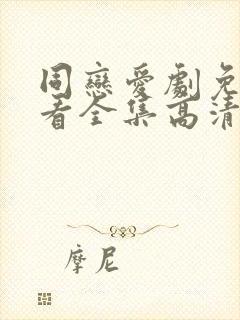 同戀愛劇免
看全集高清
摩尼